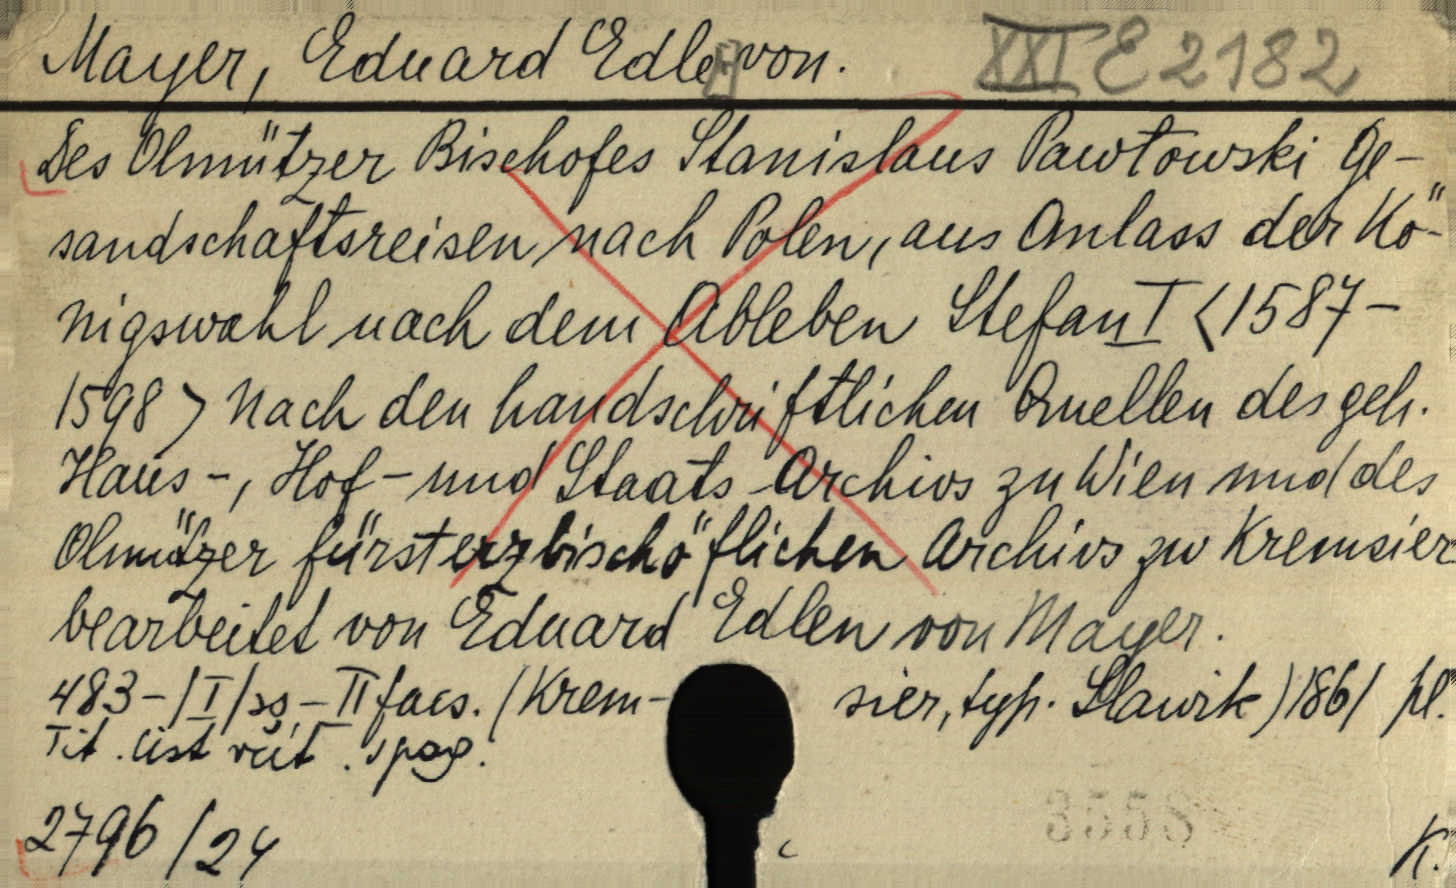 Mayer, Eduard Edle von. XXI E 2182
Des Olmützer Bischofes Stanislaus Pawłowski Ge-
sandschaftsreisen nach Polen, aus Anlass der Kö-
nigswahl nach dem Ableben Stefan I <1587-
1598> Nach den handschriftlichen Quellen des geh.
Haus-, Hof- und Staats-Archivs zu Wien und des
Olmützer fürsterzbischöflichen Archivs zu Kremsier
bearbeitet von Eduard Edlen von Mayer.
483-/I/ss-II facs. (Krem- sier, typ. Slawik) 1861 pl.
Tit. list
2796/24 K.